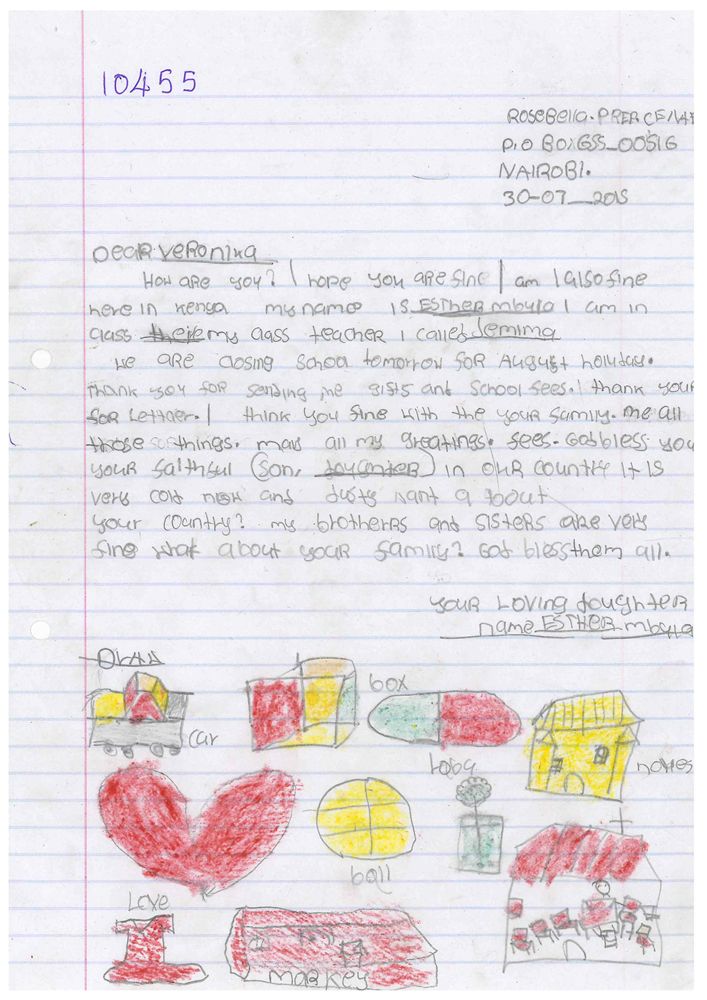 10455
RoseBella. PRERCE/WA
P.O BOX 655_00516
NAIROBI.
30-07__2015
Dear VERONIKA
How are you? I hope you are fine I am I also fine
here in Kenya my name IS ESTHER mbula I am in
class my class teacher i called Jemima
We are closing school tomorrow for August holiday.
Thank you for sending me gifts and school sees. I thank your
for Letter. I think you fine with the your family. me all
those things. may all my greatings. fees. God bless you
your faithful (son, daughter) in our country it is
very cold now and dusty want a bout
your country? my brothers and sisters are very
fine what about your family? God bless them all.
your Loving doughter
name ESTHER mbula
car
box
ball
Love
MARKEY